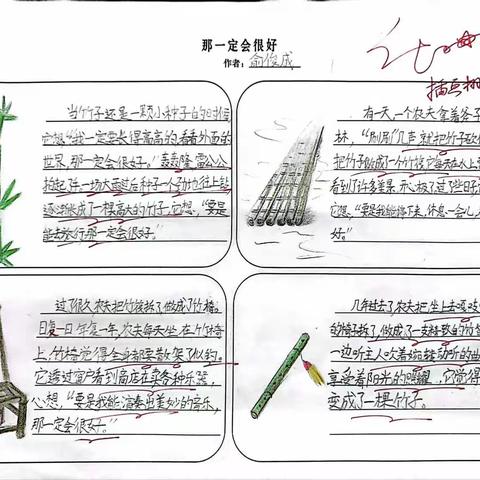 那一定会很好
作者:俞俊成
插画栩
当竹子还是一颗小种子的时候
它想:“我一定要长得高高的,看看外面的
世界,那一定会很好。”轰轰隆,雷公公
拍起了,一场大雨过后种子一个劲地往上钻
逐渐长成了一棵高大的竹子,它想:“要是
能去旅行,那一定会很好。”
有一天,一个农夫拿着斧子
林,“刷刷”几声,就把竹子砍
把竹子做成了一个竹筏,它每天在水上
看到了许多美景,开心极了,过了些日子
它想:“要是我能停下来,休息一会儿
好。”
过了很久,农夫把竹筏拆了,做成了竹椅。
日复一日,年复一年,农夫每天坐在竹椅
上,竹椅觉得全身都要散架了似的。
它透过窗户看到商店在卖各种乐器,
心想,“要是我能演奏出美妙的音乐,
那一定会很好。”
几年过去了,农夫把坐上去嘎吱
的椅子拆了,做成了一支精致的竹笛
一边听主人吹着婉转动听的曲
享受着阳光的照耀,它觉得
变成了一棵竹子。